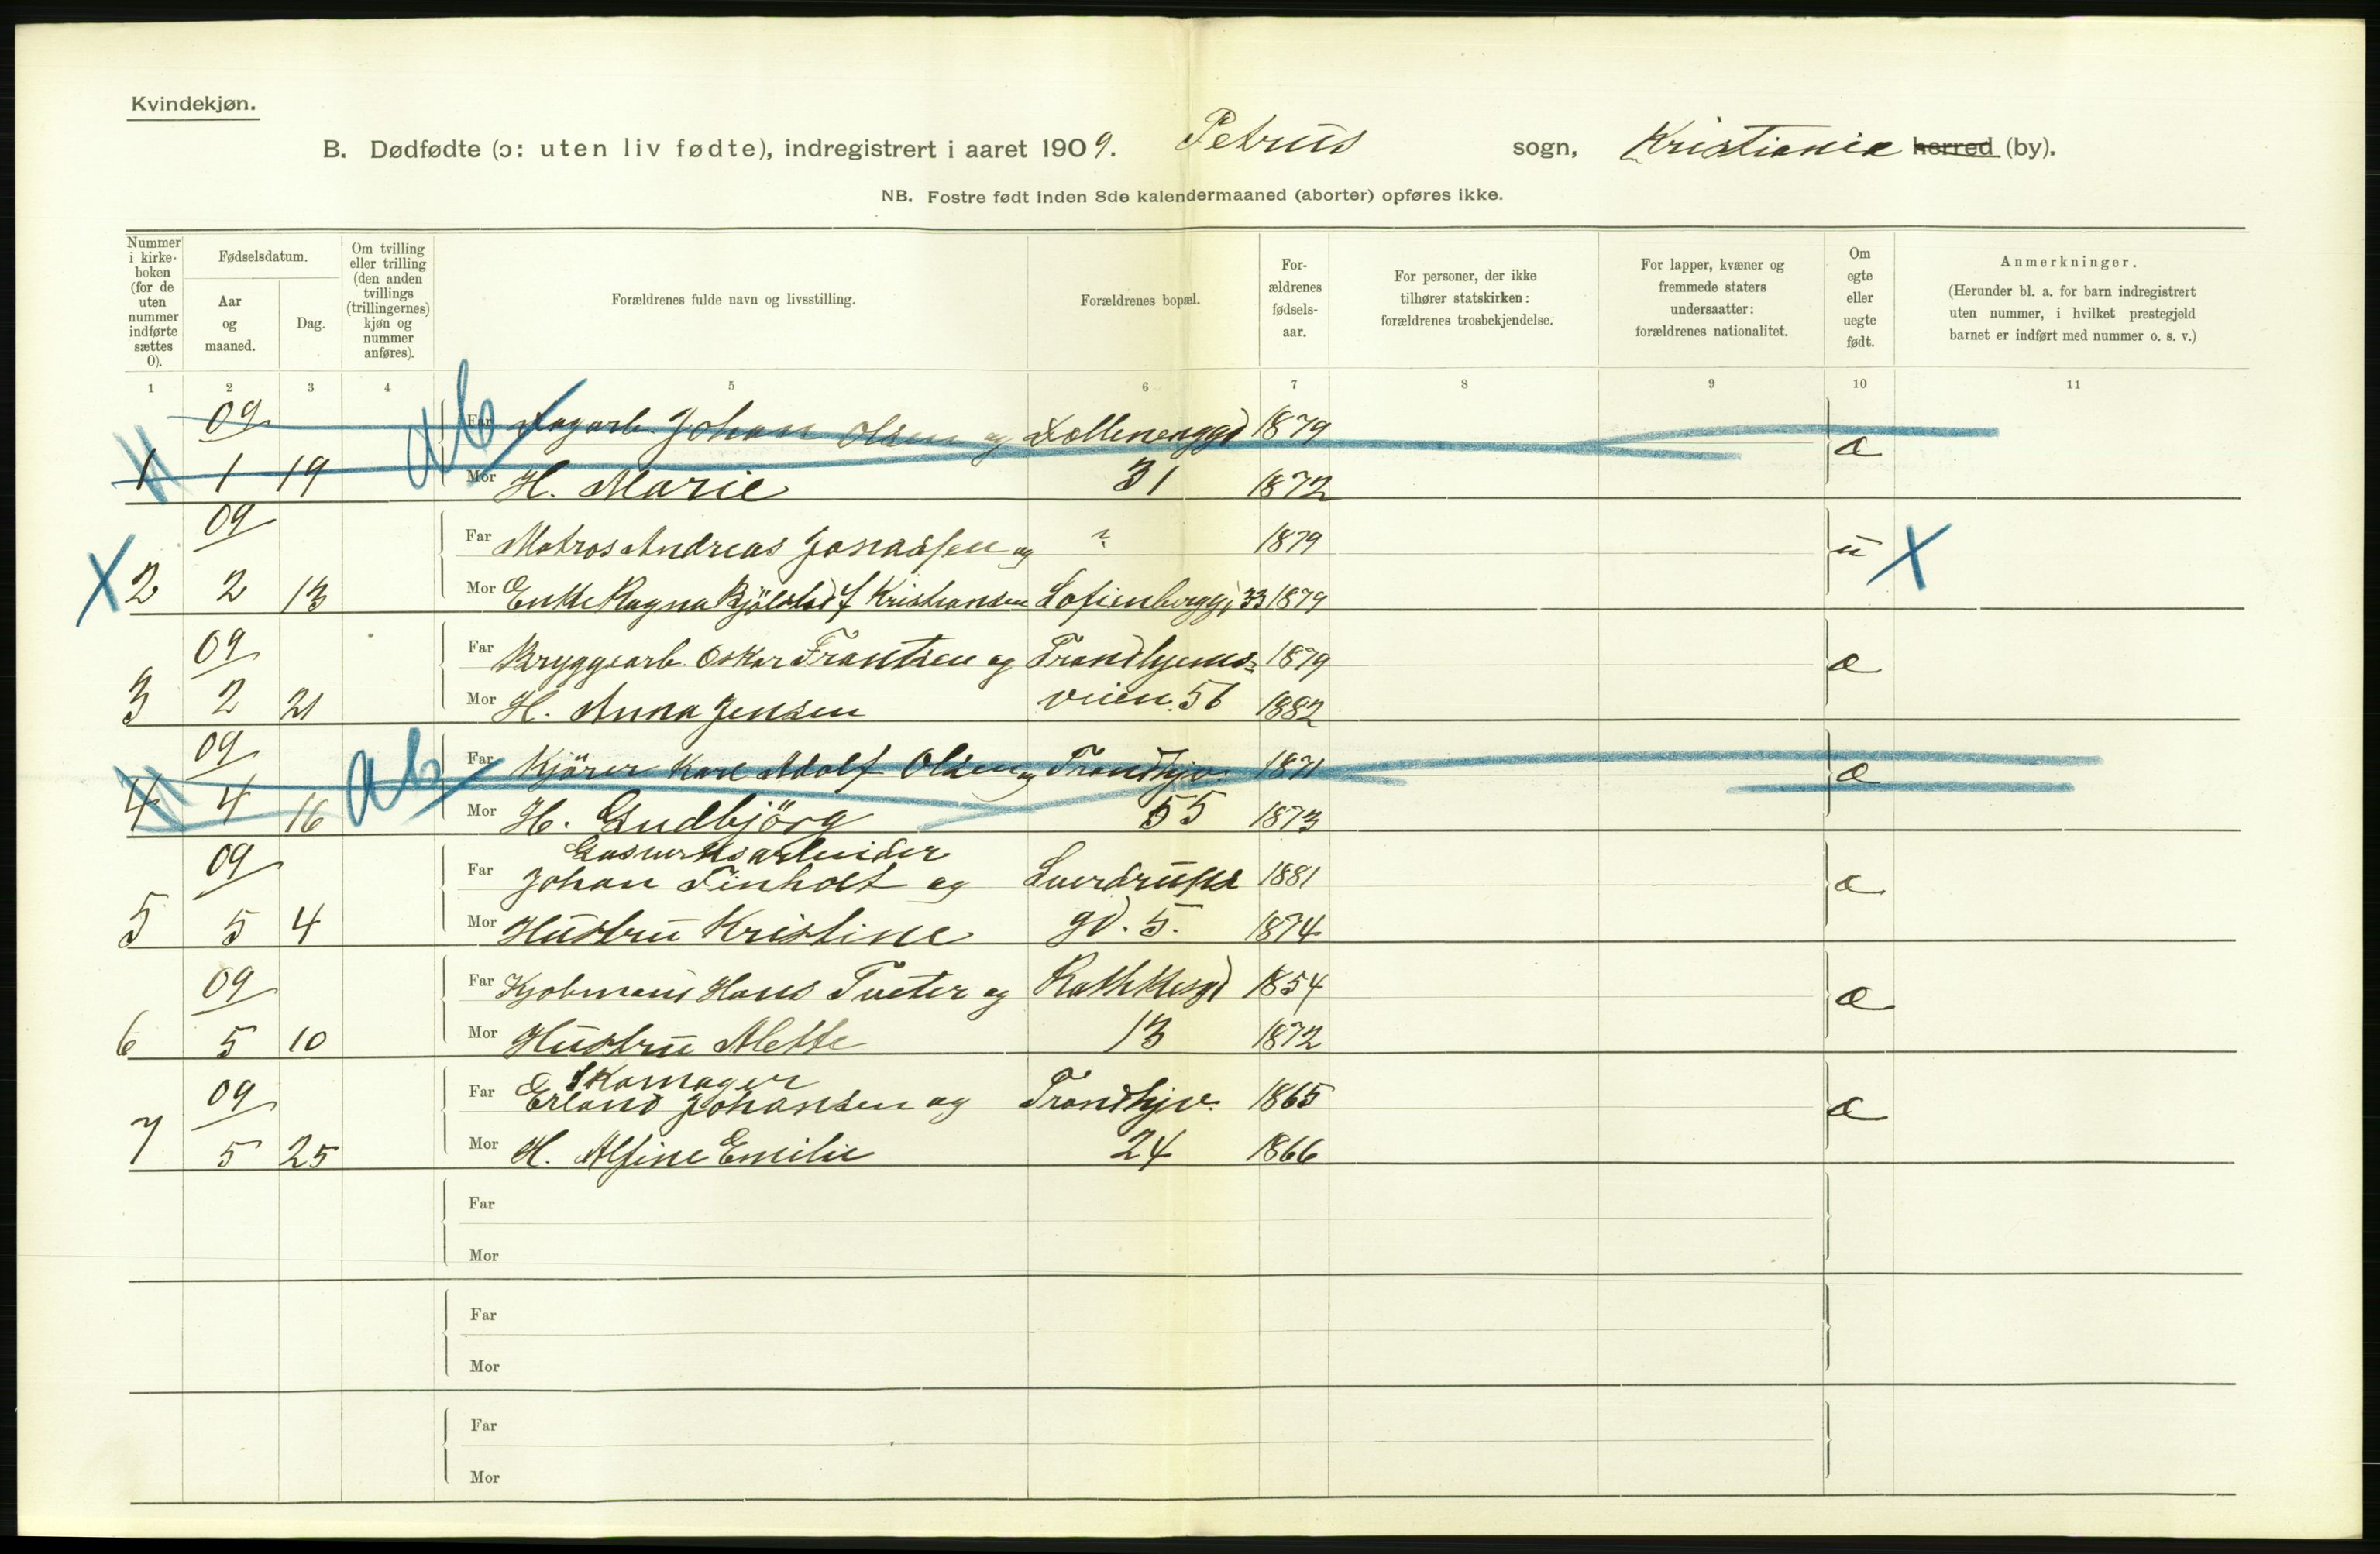 Kvindekjøn.
B. Dødfødte (ɔ: uten liv fødte), indregistrert i aaret 1909. Petrus sogn, Kristiania herred (by).
NB. Fostre født inden 8de kalendermaaned (aborter) opføres ikke.
Nummer i kirke-boken (for de uten nummer indførte sættes 0).
Fødselsdatum.
Aar og maaned.
Dag.
Om tvilling eller trilling (den anden tvillings (trillingernes) kjøn og nummer anføres).
Forældrenes fulde navn og livsstilling.
Forældrenes bopæl.
For-ældrenes fødsels-aar.
For personer, der ikke tilhører statskirken: forældrenes trosbekjendelse.
For lapper, kvæner og fremmede staters undersaatter: forældrenes nationalitet.
Om egte eller uegte født.
Anmerkninger.
(Herunder bl. a. for barn indregistrert uten nummer, i hvilket prestegjeld barnet er indført med nummer o. s. v.)
1 2 3 4 5 6 7 8 9 10 11
09 ab Far Dagarb. Johan Olsen og 1879
1 1 19 Mor H. Marie 31 1872 æ
09 Far Matros Andreas Jonassen og ? 1879 u X
X 2 2 13 Mor Enke Ragna Bjölstad f Kristiansen Sofienbergg, 33 1879
09 Far Bryggearb. Oskar Frantsen og Trondhjems- 1879 æ
3 2 21 Mor H. Anna Jensen veien 56 1882
09 ab Far Kjörer Karl Adolf Olsen og Trondhjv. 1871 æ
4 4 16 Mor H. Gudbjörg 55 1873
Gasverksarbeider
09 Far Johan Finholt og Sverdrups 1881 æ
5 5 4 Mor Hustru Kristine gd. 5. 1874
09 Far Kjobmand Hans Tveter og Rathkesgd 1854 æ
6 5 10 Mor Hustru Alette 13 1872
Skomager
09 Far Erland Johansen og Trondhjv. 1865 æ
7 5 25 Mor H. Alfine Emilie 24 1866
Far
Mor
Far
Mor
Far
Mor